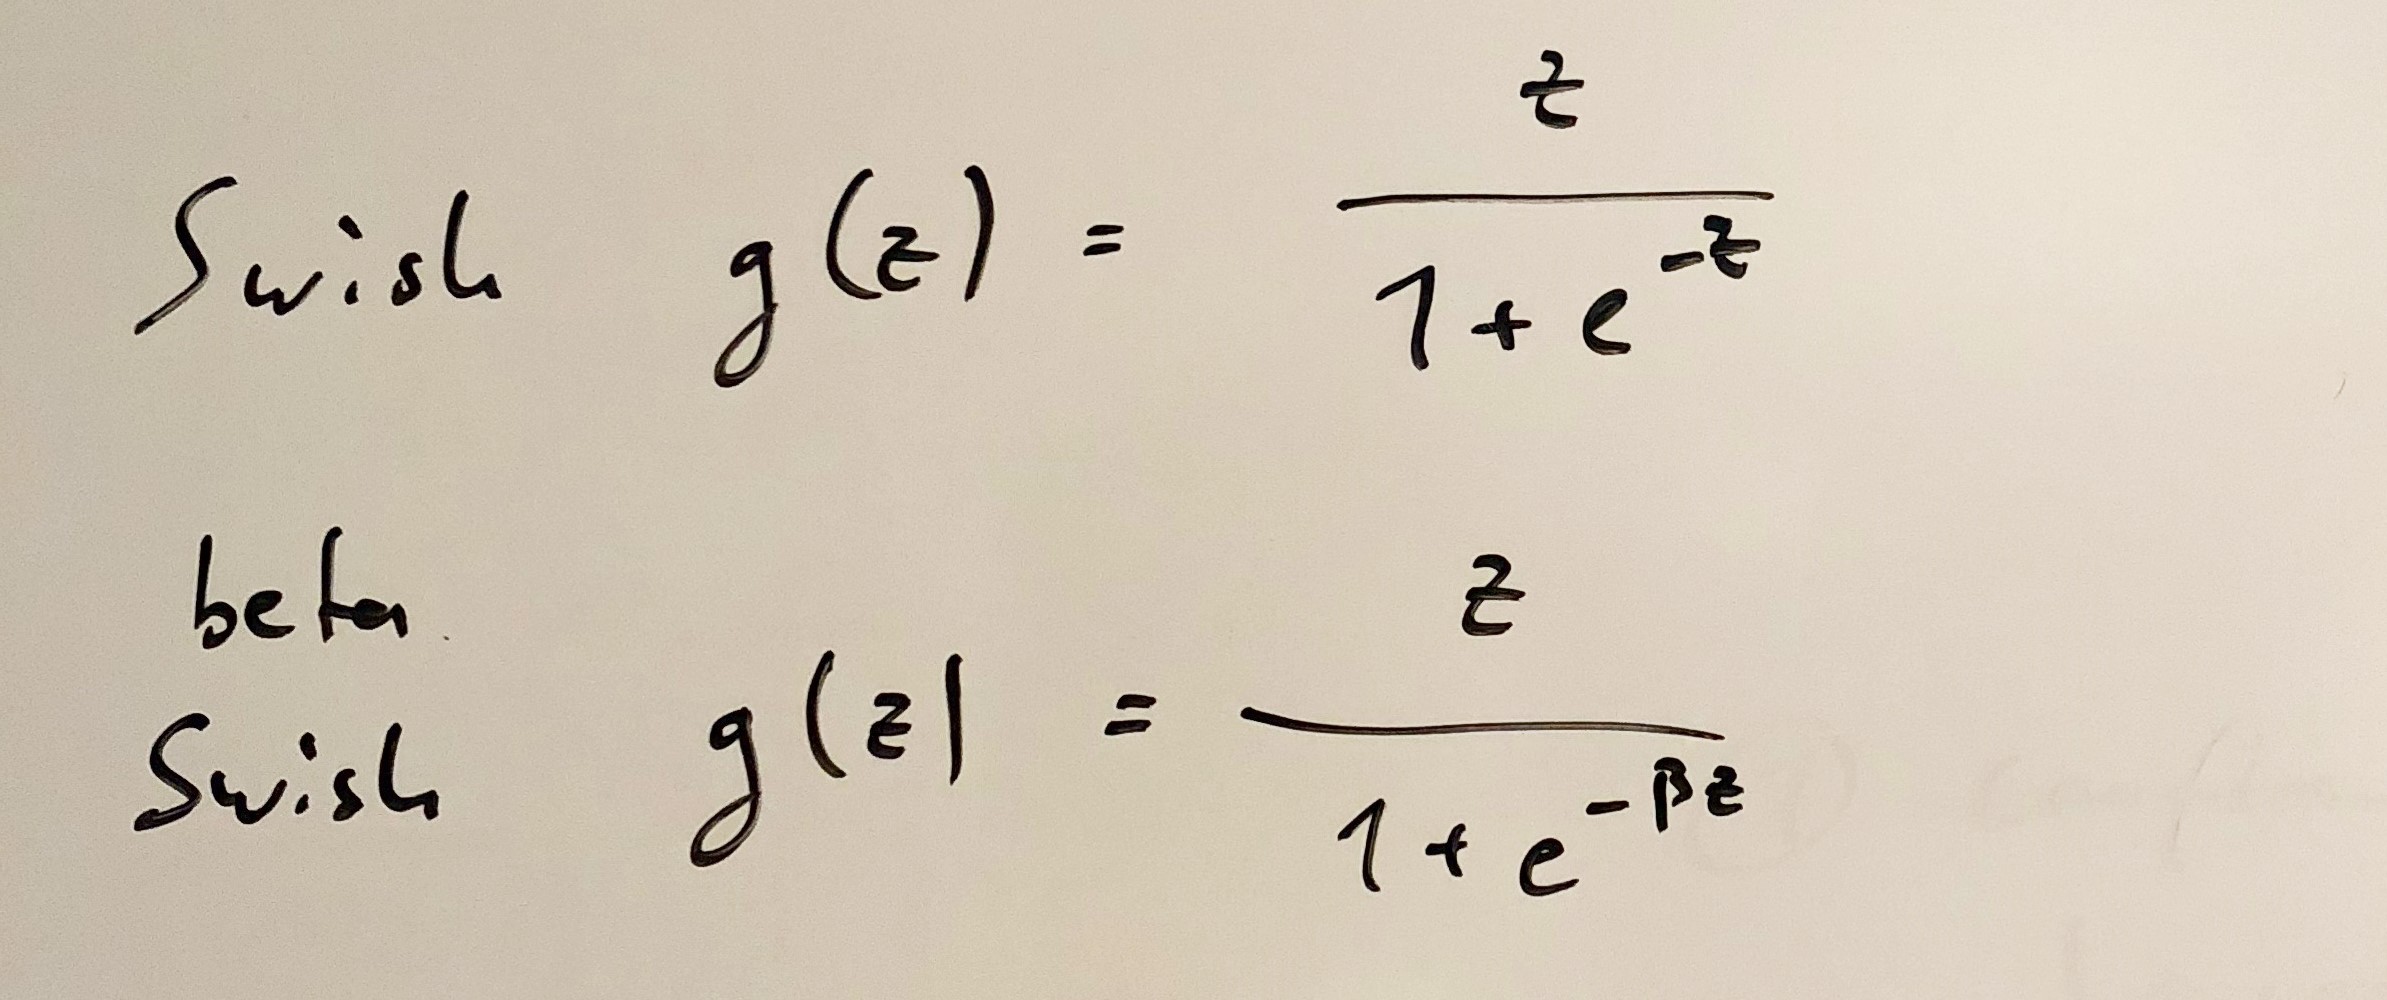 Swish g(z) = z / 1 + e^-z
beta
Swish g(z) = z / 1 + e^-βz